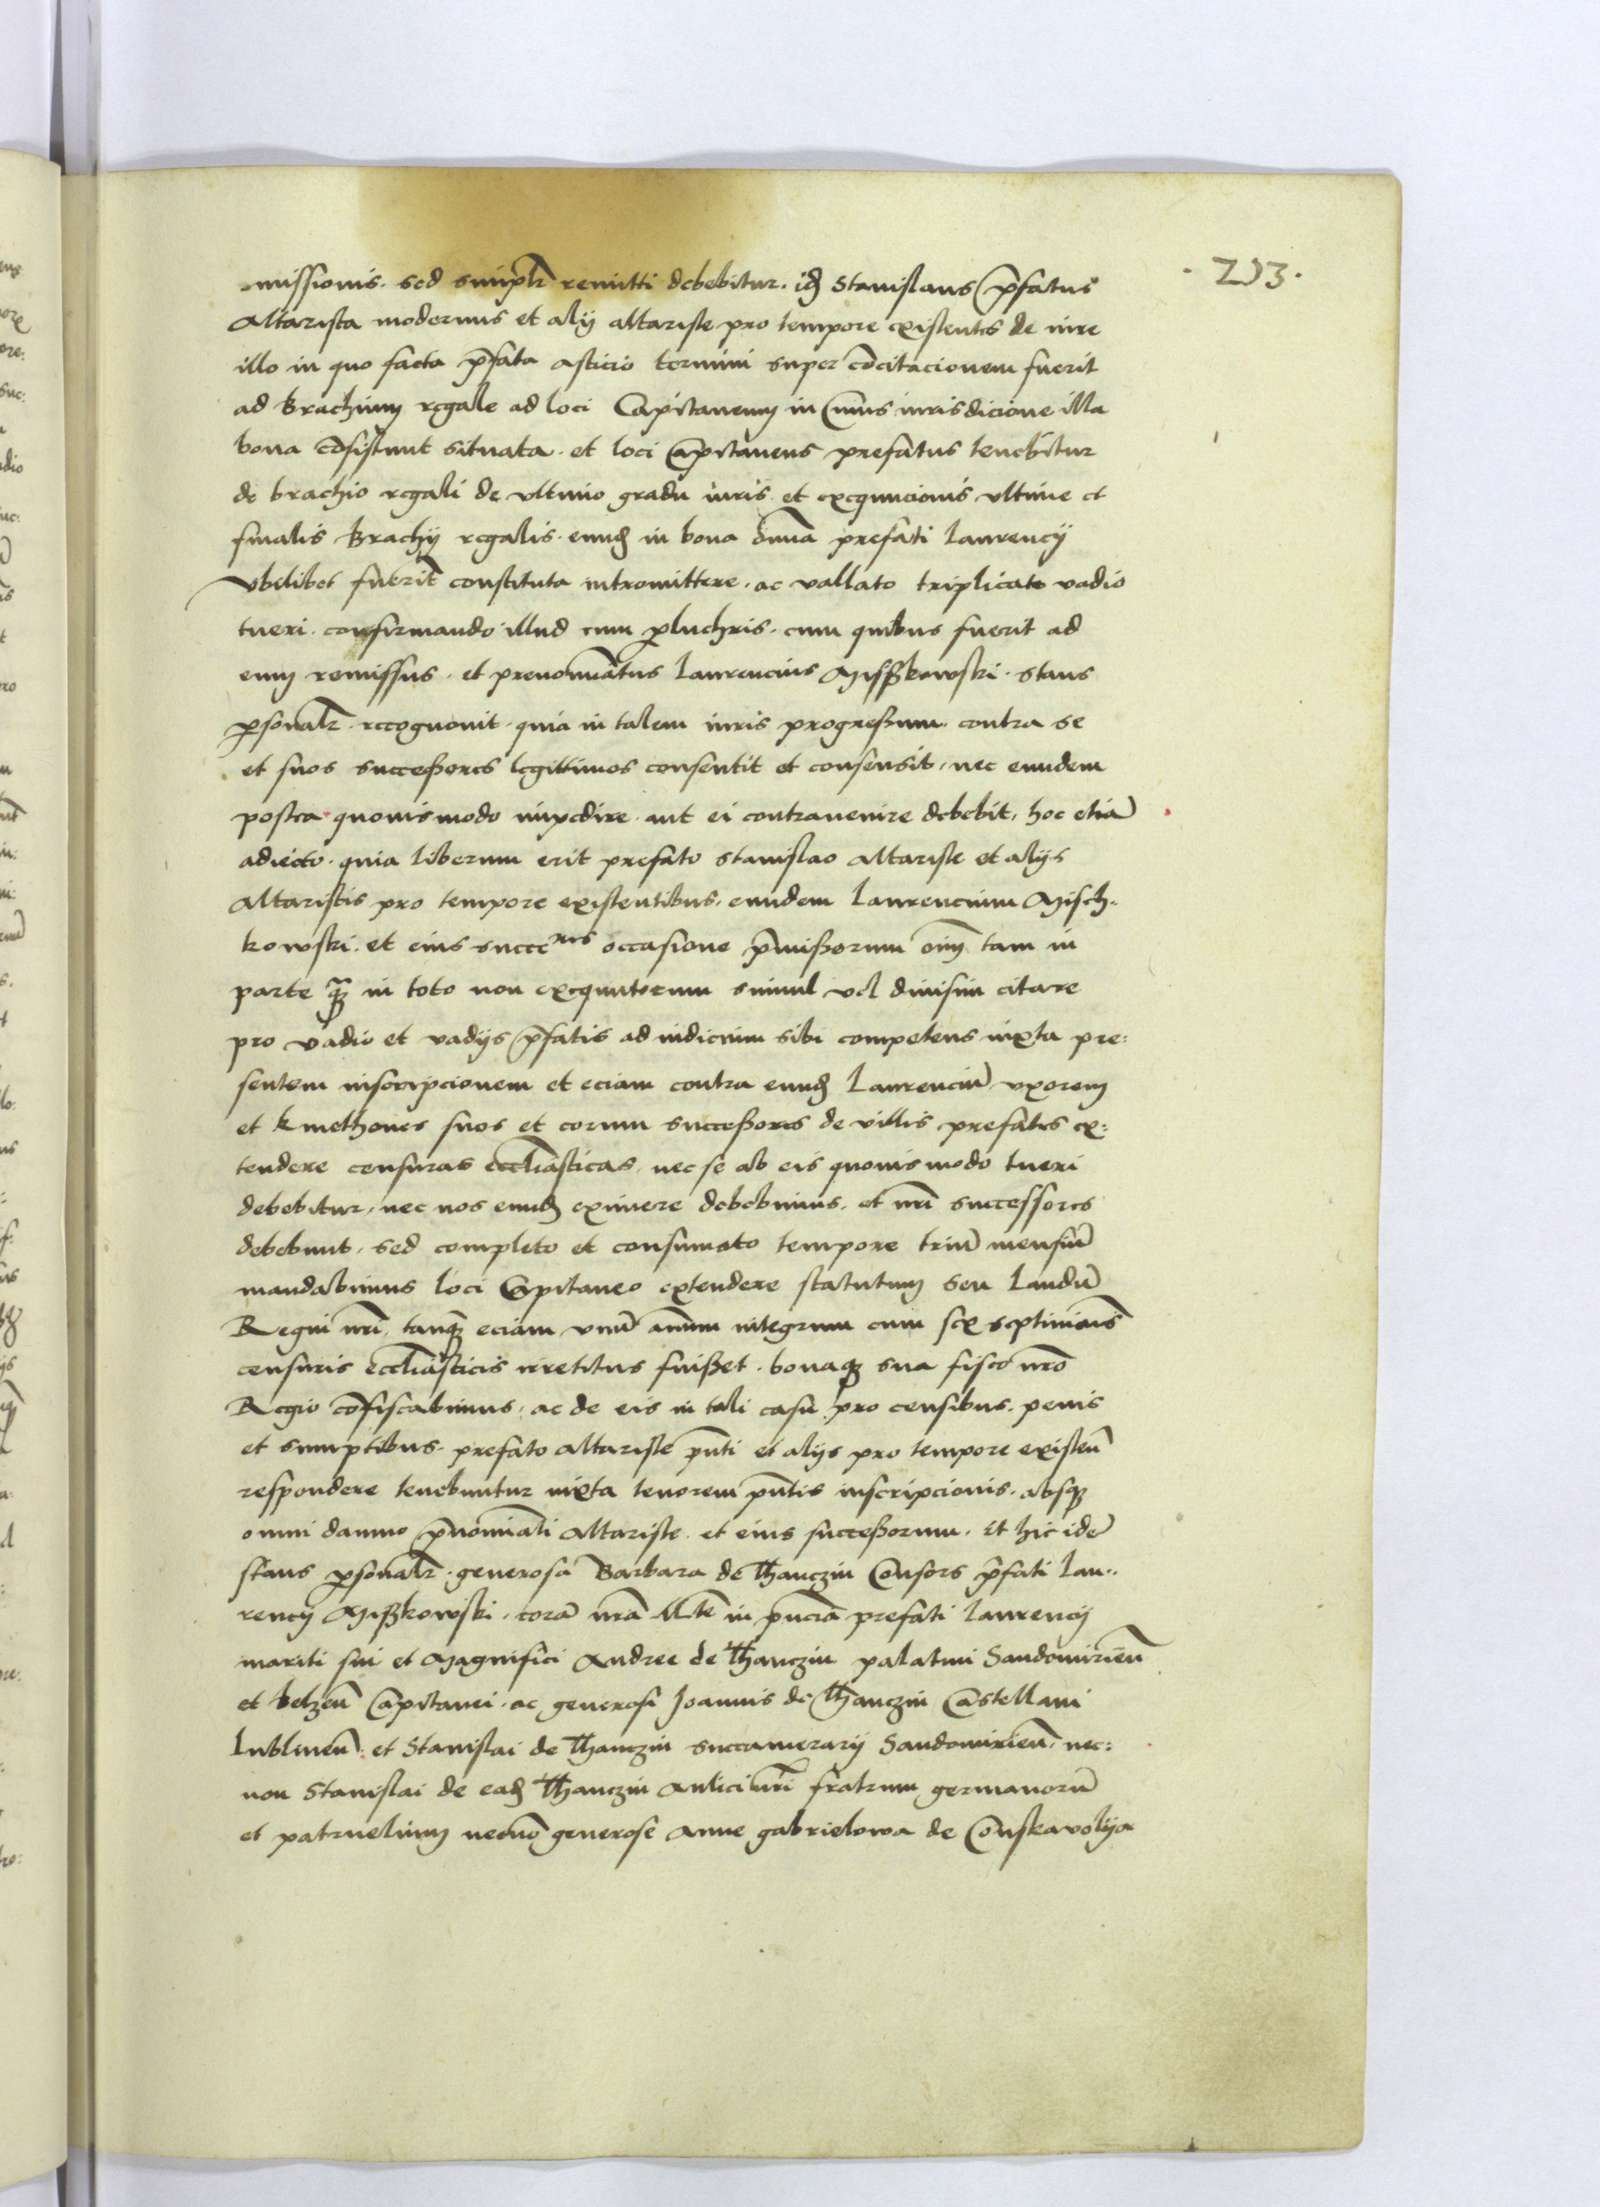 . 213 .
missionis. sed simpl̄r remitti debebitur. id̄ Stanislaus p̄fatus
Altarista modernus et alij altariste pro tempore existentes de iure
illo in quo facta p̄fata asticio termini super cōcitacionem fuerit
ad Brachium regale ad loci Capitaneum in cuius iurisdicione illa
bona cōsistunt situata. et loci Capitaneus prefatus tenebitur
de brachio regali de ultimo gradu iuris et exequucionis ultime et
finalis Brachij regalis. eund̄ in bona om̄ia prefati Laurencij
Vbilibet fuerint̄ constituta intromittere. ac vallato triplicato vadio
tueri. confirmando illud cum p̄luchris. cum quibus fuerit ad
eum remissus. et prenominatus Laurencius Misskowski. stans
p̄sonalr̄. recognouit. quia in talem iuris progressum contra se
et suos successores legittimos consentit et consensit. nec eundem
postea quouismodo impedire aut ei contrauenire debebit, hoc etiā
adiecto. quia liberum erit prefato Stanislao Altariste et alijs
Altaristis pro tempore existentibus. eundem Laurencium Misch-
kowski. et eius succe^ris occasione p̄missorum oīm tam in
parte q̄ in toto non exequutorum simul vel diuisim citare
pro vadio et vadijs p̄fatis ad iudicium sibi competens iuxta pre:
sentem inscripcionem et eciam contra eund̄ Laurenciū vxorem
et kmethones suos et eorum successores de villis prefatis ex:
tendere censuras eccl̄iasticas. nec se ab eis quouismodo tueri
debebitur, nec nos eund̄ eximere debebimus. et nr̄i successores
debebunt. sed completo et consumato tempore triū mensiū
mandabimus loci Capitaneo extendere statutum seu Laudū
Regni nr̄i. tanq̄ eciam vnū annum integrum cum sex septimanis
censuris eccl̄iasticis irretitus fuisset. bonaq̄ sua fisco nr̄o
Regio cōfiscabimus. ac de eis in tali casu pro censibus. penis
et sumptibus. prefato Altariste pn̄ti et alijs pro tempore existen̄
respondere tenebuntur iuxta tenorem pn̄tis inscripcionis. absq̄
omni damno p̄nominati Altariste. et eius successorum. Et hic idē
stans p̄sonalr̄. generosa Barbara de Thanczin Consors p̄fati Lau-
rencij Misskowski. corā nr̄a M̄te in pn̄cia prefati Laurencij
mariti sui et Magnifici Andree de Thanczin palatini Sandomirien̄
et belzen̄ Capitanei. ac generosi Joannis de Thanczin Castellani
Lublinen̄. et Stanislai de Thanczin succamerarij Sandomirien̄. nec:
non Stanislai de ead̄ Thanczin Aulici nr̄i fratrum germanorū
et patruelium necnō generose Anne gabrielowa de Conskavolya